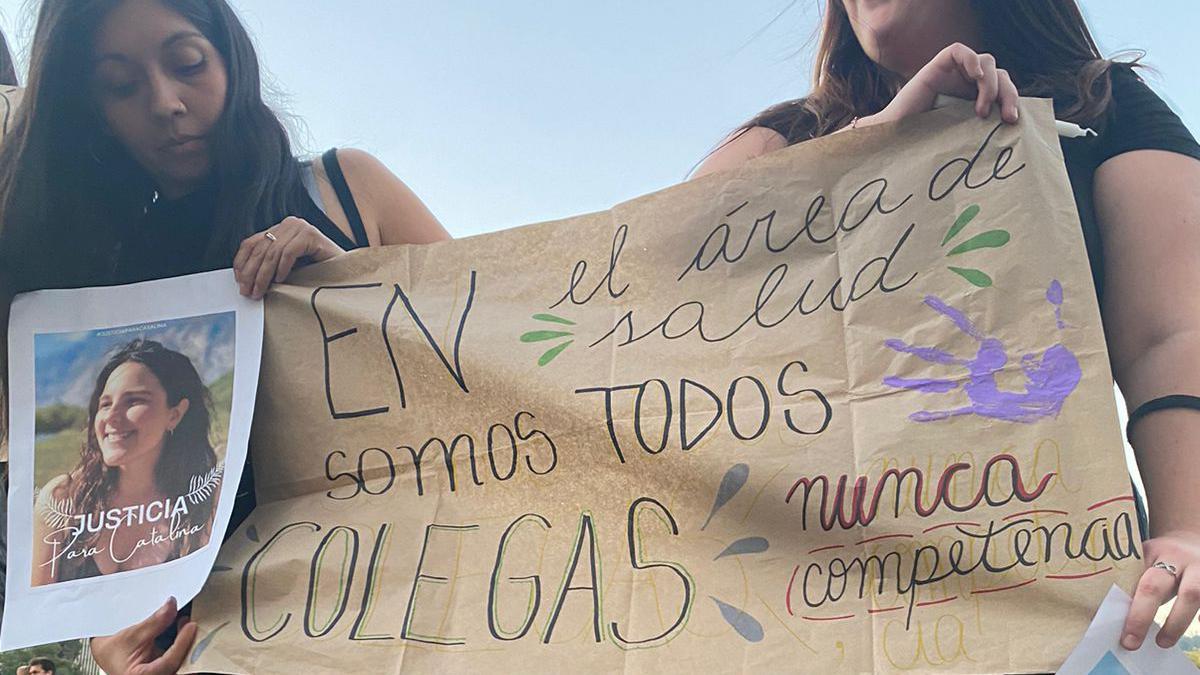 #JUSTICIAPARACATALINA
JUSTICIA
Para Catalina
EN el área de
salud
somos TODOS
COLEGAS
nunca
competencia